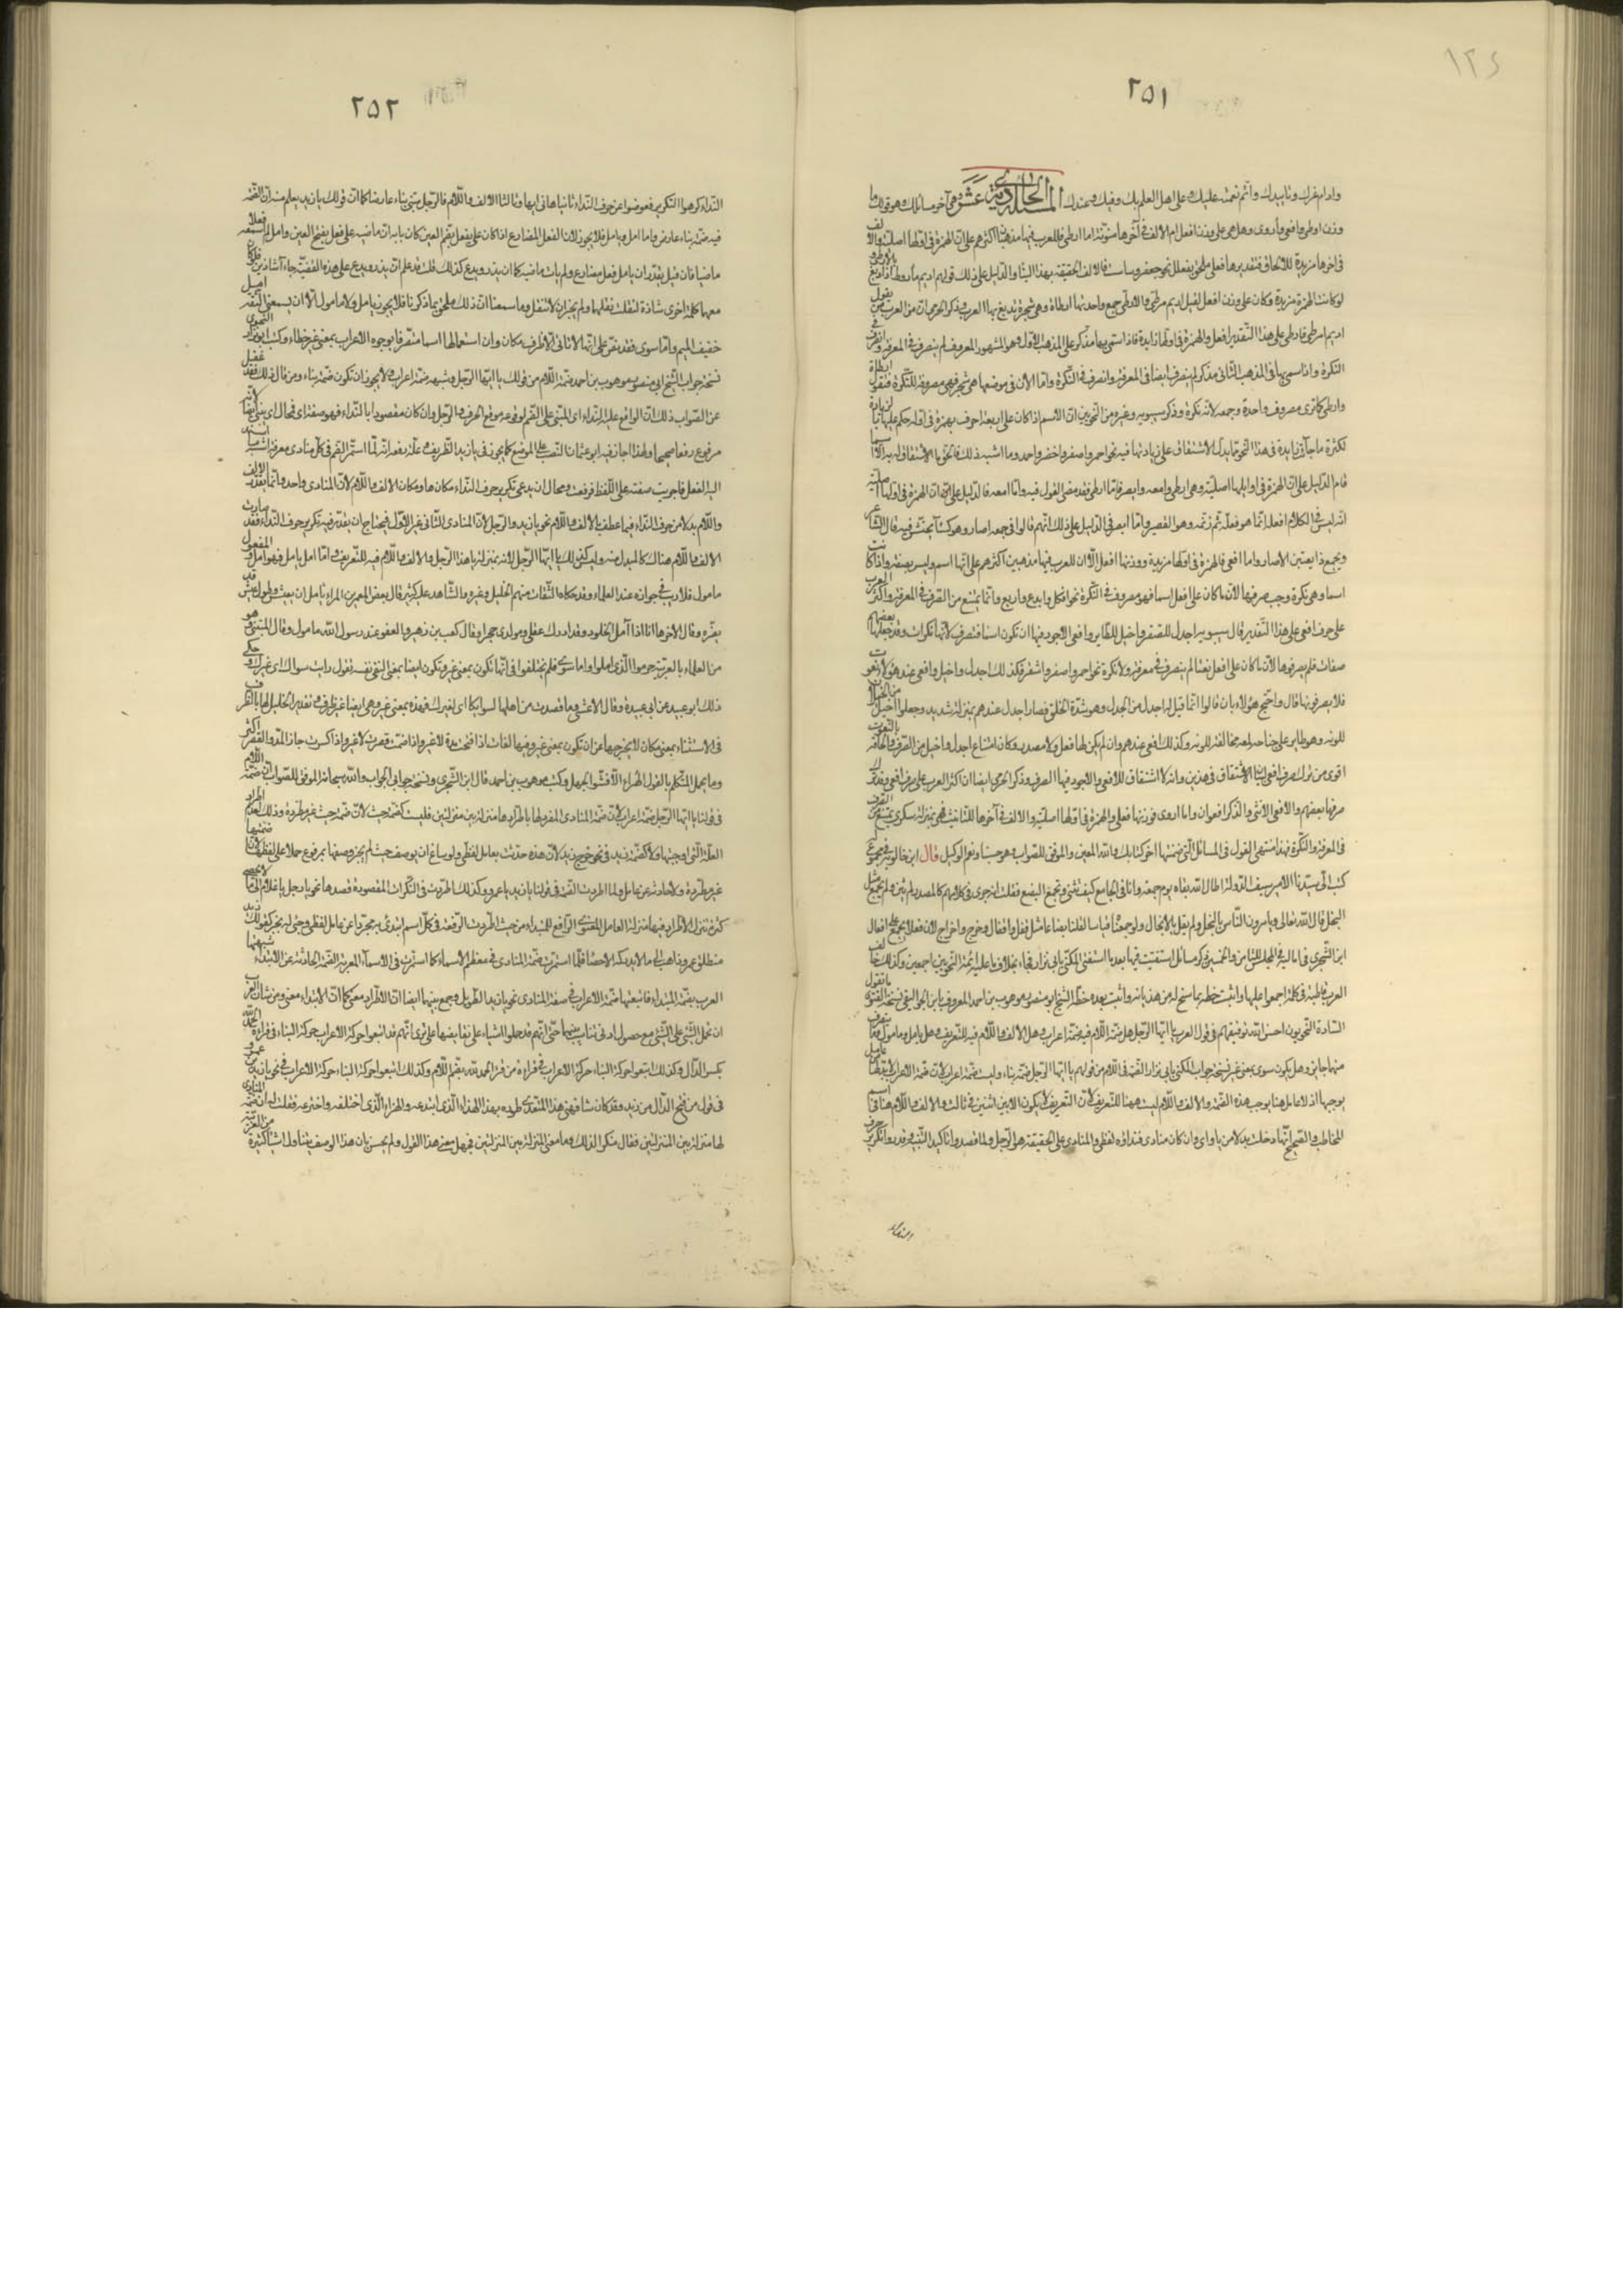 ١٢٤
٢٥١
وادام عزك وتاييدك واتم نعمته عليك وعلى اهل العلم بك وفيك وعندك المسئلة الحادية عشر وهى آخر مسائلك وهو قولك ما
وزن اوطى وافعى وأروى وهل هى على وزن افعل ام الالف فى آخرها منونة اما ارطى فللعرب فيها مذهبان اكثرهم على ان الهمزة فى اولها اصلية والالف
فى اخرها مزيدة للالحاق فتقديرها فعلى ملحق بفعلل نحو جعفر وليست فالالف الحقيقة بهذا البناء والدليل على ذلك قولهم اديم مأروط اذا دبغ بالارطى
لو كانت الهمزة مزيدة وكان على وزن افعل لقيل اديم مرطى والارطى جمع واحدتها ارطاة وهى شجرة تدبغ بها العرب وذكر الجرمى ان من العرب من يقول
اديم مرطى فارطى على هذا التقدير افعل والهمزة فى اولها زايدة فاذا سمى بها مذكر على المذهب الاول وهو المشهور المعروف لم ينصرف فى المعرفة وانصرف فى
النكرة واذا سمى بها فى المذهب الثانى مذكر لم ينصرف ايضا فى المعرفة وانصرف فى النكرة واما الان فى موضعها هى شجر فهى مصروفة للنكرة فتقول ارطاة
وارطى كما ترى مصروف واحدة وجمعه لانه نكرة وذكر سيبويه وغيره من النحويين ان الاسم اذا كان على اربعة احرف بهمزة فى اوله حكم عليها بانها زيادة
لكثرة ما جاءت زايدة فى هذا النحو مما يدل الاشتقاق على زيادتها فيه نحو احمر واصفر واخضر واحد وما اشبه ذلك
قام الدليل على ان الهمزة فى اوايلها اصلية وهى ارطى وامعه وايصر فاما ارطى فقد مضى القول فيه واما امعه فالدليل على ان الهمزة فى اولها اصلية
انه ليس فى الكلام افعلة انما هو فعلة ثم زنمه وهو القصير واما ايصر فى الدليل على ذلك انهم قالوا فى جمعه اصار وهو كساء يحتش فيه قال الشاعر
ويجمع ذا بعينهن الاصار واما افعى فالهمزة فى اولها مزيدة ووزنها افعل الا ان للعرب فيها مذهبين اكثرهم على انها اسم وليس بصفة واذا كانت
اسما وهى نكرة وجب صرفها لان ما كان على افعل اسما فهو مصروف فى النكرة نحو افكل وايدع واربع وانما يمتنع من الصرف فى المعرفة واكثر العرب
على صرف افعى على هذا التقدير قال سيبويه اجدل للصقر واخيل للطاير وافعى الاجود فيها ان تكون اسما فتصرف لانها نكرات وقد جعلها بعضهم
صفات فلم يصرفوها لان ما كان على افعل نعتا لم ينصرف فى معرفة ولا نكرة نحو احمر واصفر واشقر فكذلك اجدل واخيل وافعى عند هؤلاء نعوت
فلا يصرفونها قال واحتج هؤلاء بان قالوا انما قيل له اجدل من الجدل وهو شدة الخلق فصار اجدل عندهم بمنزلة شديد وجعلوا اخيل من الخيلان
للونه وهو طاير على جناحه لمعه مخالفة للونه وكذلك افعى عندهم وان لم يكن لها فعل ولا مصدر وكان امتناع اجدل واخيل من الصرف والحاقه بالنعوت
اقوى من ترك صرف افعى لبيان الاشتقاق فى هذين وانه لا اشتقاق للافعى والاجود فيها الصرف وذكر الجرمى ايضا ان اكثر العرب على صرف افعى وقد ترك
صرفها بعضهم والافعى الانثى والذكر افعوان واما اروى فوزنها فعلى والهمزة فى اولها اصلية والالف فى آخرها للتانيث فهى بمنزلة سكرى يمتنع من الصرف
فى المعرفة والنكرة فهذا منتهى القول فى المسائل التى ضمنتها اخر كتابك والله المعين والموفق للصواب وهو حسبنا ونعم الوكيل قال ابن خالويه فى مجموع
كتب الى سيدنا الامير سيف الدولة اطال الله بقاه يوم جمعه وانا فى الجامع كيف تثنى وتجمع البضع فقلت انه جرى فى كلامهم كالمصدر لم يثن ولم يجمع مثل
البخل قال الله تعالى ويامرون الناس بالبخل ولم يقل بالابخال ولو جمعناه قياسا لقلنا ابضاعا مثل قفل واقفال وخرج واخراج لان فعلا يجمع على افعال
ابن الشجرى فى اماليه فى المجلس الثامن والخمسين ذكر مسائل استفتيت فيها بعد ما استفتى المكنى بابى نزار فجاء بخلاف ما عليه ائمة النحويين اجمعين وكذلك خالف
العرب قاطبة فى كلمة اجمعوا عليها واثبت خطه بما سنح له من هذيانه واثبت بعده خط الشيخ ابو منصور موهوب بن احمد المعروف بابن الجواليقى نسخة الفتوى ما يقول
السادة النحويون احسن الله توفيقهم فى قول العرب يا ايها الرجل هل ضمة اللام فيه ضمة اعراب وهل الالف واللام فيه للتعريف وهل يامل ومامول
منها جايز وهل يكون سوى بمعنى غير نسخة جواب المكنى بابى نزار الضمة فى اللام من قولهم يا ايها الرجل ضمة بناء وليست ضمة اعراب لان ضمة الاعراب لا بد لها من عامل
يوجبها اذ لا عامل هنا يوجب هذه الضمة والالف واللام ليست ههنا للتعريف لان التعريف لا يكون الا بين اثنين فى ثالث والالف واللام هنا فى اسم
المخاطب والصحيح انها دخلت بدلا من يا واى وان كان منادى فنداؤه لفظى والمنادى على الحقيقة هو الرجل ولما قصدوا تاكيد التنبيه وقدروا تكرير حرف
٢٥٢
النداء كرهوا التكرير فعوضوا عن حرف النداء ثانيا هاء فى ايها وثالثا الالف واللام فالرجل مبنى بناء عارضا كما ان قولك يا زيد يعلم منه ان الضمة
فيه ضمة بناء عارض واما امل ويامل فلا يجوز لان الفعل المضارع اذا كان على يفعل بضم العين كان بابه ان ماضيه على فعل بفتح العين وامل لم استمعه فعلا
ماضيا فان قيل يقدر ان يامل فعل مضارع ولم يات ماضيه كما ان يذر ويدع كذلك قلت قد علم ان يذر ويدع على هذه القضية جاءا شاذين فلو كان
معهما كلمة اخرى شاذة لنقلت نقلهما ولم يجز ان لا تنقل وما سمعنا ان ذلك ملحق بما ذكرنا فلا يجوز يامل ولا مامول الا ان يسمعنى الثقة امل
خفيف الميم واما سوى فقد نص على انها لا تاتى الا ظرف مكان وان استعمالها اسما متصرفا بوجوه الاعراب بمعنى غير خطاء وكتب ابو نزار النحوى
نسخة جواب الشيخ ابى منصور موهوب بن احمد ضمة اللام من قولك يا ايها الرجل وشبهه ضمة اعراب ولا يجوز ان تكون ضمة بناء ومن قال ذلك فقد غفل
عن الصواب وذلك ان الواقع عليه النداء اى المبنى على الضم لوقوعه موقع الحرف والرجل وان كان مقصودا بالنداء فهو صفة اى فمحال ان يبنى ايضا لانه
مرفوع رفعا صحيحا ولهذا اجاز فيه ابو عثمان النصب على الموضع كما يجوز فى يا زيد الظريف وعلة رفعه انه لما استمر الضم فى كل منادى معرفة اشبه ما اسند
اليه الفعل فاجريت صفته على اللفظ فرفعت ومحال ان يدعى تكرير حرف النداء مكان ها ومكان الالف واللام لان المنادى واحد وانما يقدر الالف
واللام بدلا من حرف النداء فيما عطف بالالف واللام نحو يا زيد والرجل لان المنادى الثانى غير الاول فيحتاج ان يقدر فيه تكرير حرف النداء فقد صارت
الالف واللام هناك كالبدل منه وليس كذلك يا ايها الرجل لانه بمنزلة يا هذا الرجل والالف واللام فيه للتعريف واما امل يامل فهو امل والمفعول
مامول فلا ريب فى جوازه عند العلماء وقد حكاه الثقات منهم الخليل وغيره والشاهد عليه كثير قال بعض المعمرين المرء يامل ان يعيش وطول عيش قد
يضره وقال الاخرها انا اذا آمل الخلود وقد ادرك عقلى ومولدى حجرا وقال كعب بن زهير والعفو عند رسول الله مامول وقال المتنبى وهو
من العلماء بالعربية حرموا الذى املوا واما سوى فلم يختلفوا فى انها تكون بمعنى غير وتكون ايضا بمعنى الشىء نفسه تقول رايت سواك اى غيرك حكى
ذلك ابو عبيد عن ابى عبيدة وقال الاعشى وما قصدت من اهلها لسوائكا اى لغيرك فهذه بمعنى غير وهى ايضا غير ظرف وتقدير الخليل لها بالظرف
فى الاستثناء بمعنى مكان لا يخرجها عن ان تكون بمعنى غير وفيها لغات اذا فتحت مدت لا غير واذا ضمت قصرت لا غير واذا كسرت جاز المد والقصر اكثر
وما يحمل المتكلم بالقول الهراء الا فشو الجهل وكتب موهوب بن احمد قال ابن الشجرى ونسخة جوابى الجواب والله سبحانه الموفق للصواب ان ضمة اللام
فى قولنا يا ايها الرجل ضمة اعراب لان ضمة المنادى المفرد لها باطرادها منزلة بين منزلتين فليست كضمة حيث لان ضمة حيث غير مطردة وذلك لعدم اطراد
العلة التى اوجبتها ولا كضمة زيد فى نحو خرج زيد لان هذه حدثت بعامل لفظى ولو ساغ ان يوصف حيث لم يجز وصفها بمرفوع حملا على لفظها لان ضمتها
غير مطردة ولا حادثة عن عامل ولما اطردت الضمة فى قولنا يا زيد يا عمرو وكذلك اطردت فى النكرات المقصودة قصدها نحو يا رجل يا غلام الى ما لا يحصى
كثرة تنزل الاطراد فيها منزلة العامل المعنوى الرافع للمبتدا من حيث اطردت الرفعة فى كل اسم ابتدئ به مجردا عن عامل لفظى وجئ له بخبر كقولك زيد
منطلق عمرو ذاهب الى ما لا يدركه الاحصا فلما استمرت ضمة المنادى فى معظم الاسماء كما استمرت فى الاسماء المعربة الضمة الحادثة عن الابتداء شبهتها
العرب بضمة المبتداء فاتبعتها ضمة الاعراب فى صفة المنادى نحو يا زيد الطويل وجمع بينهما ايضا ان الاطراد معنى كما ان الابتداء معنى ومن شان العرب
ان تحمل الشئ على الشئ مع حصول ادنى تناسب بينهما حتى انهم قد حملوا اشياء على نقايضها الا ترى انهم قد اتبعوا حركة الاعراب حركة البناء فى قراءة الحمد
بكسر الدال وكذلك اتبعوا حركة البناء حركة الاعراب فى قراءة من قرا الحمد لله بضم اللام وكذلك اتبعوا حركة البناء حركة الاعراب فى نحو يا زيد بن عمرو
فى قول من فتح الدال من زيد وقد كان شافهنى هذا المتعدى طوره بهذا الهذاء الذى ابتدعه والهراء الذى اختلقه واخترعه فقلت له ان ضمة المنادى
لها منزلة بين المنزلتين فقال منكرا لذلك وما معنى المنزلة بين المنزلتين فجهل معنى هذا القول ولم يحس بان هذا الوصف يتناول اشياء كثيرة من العربية